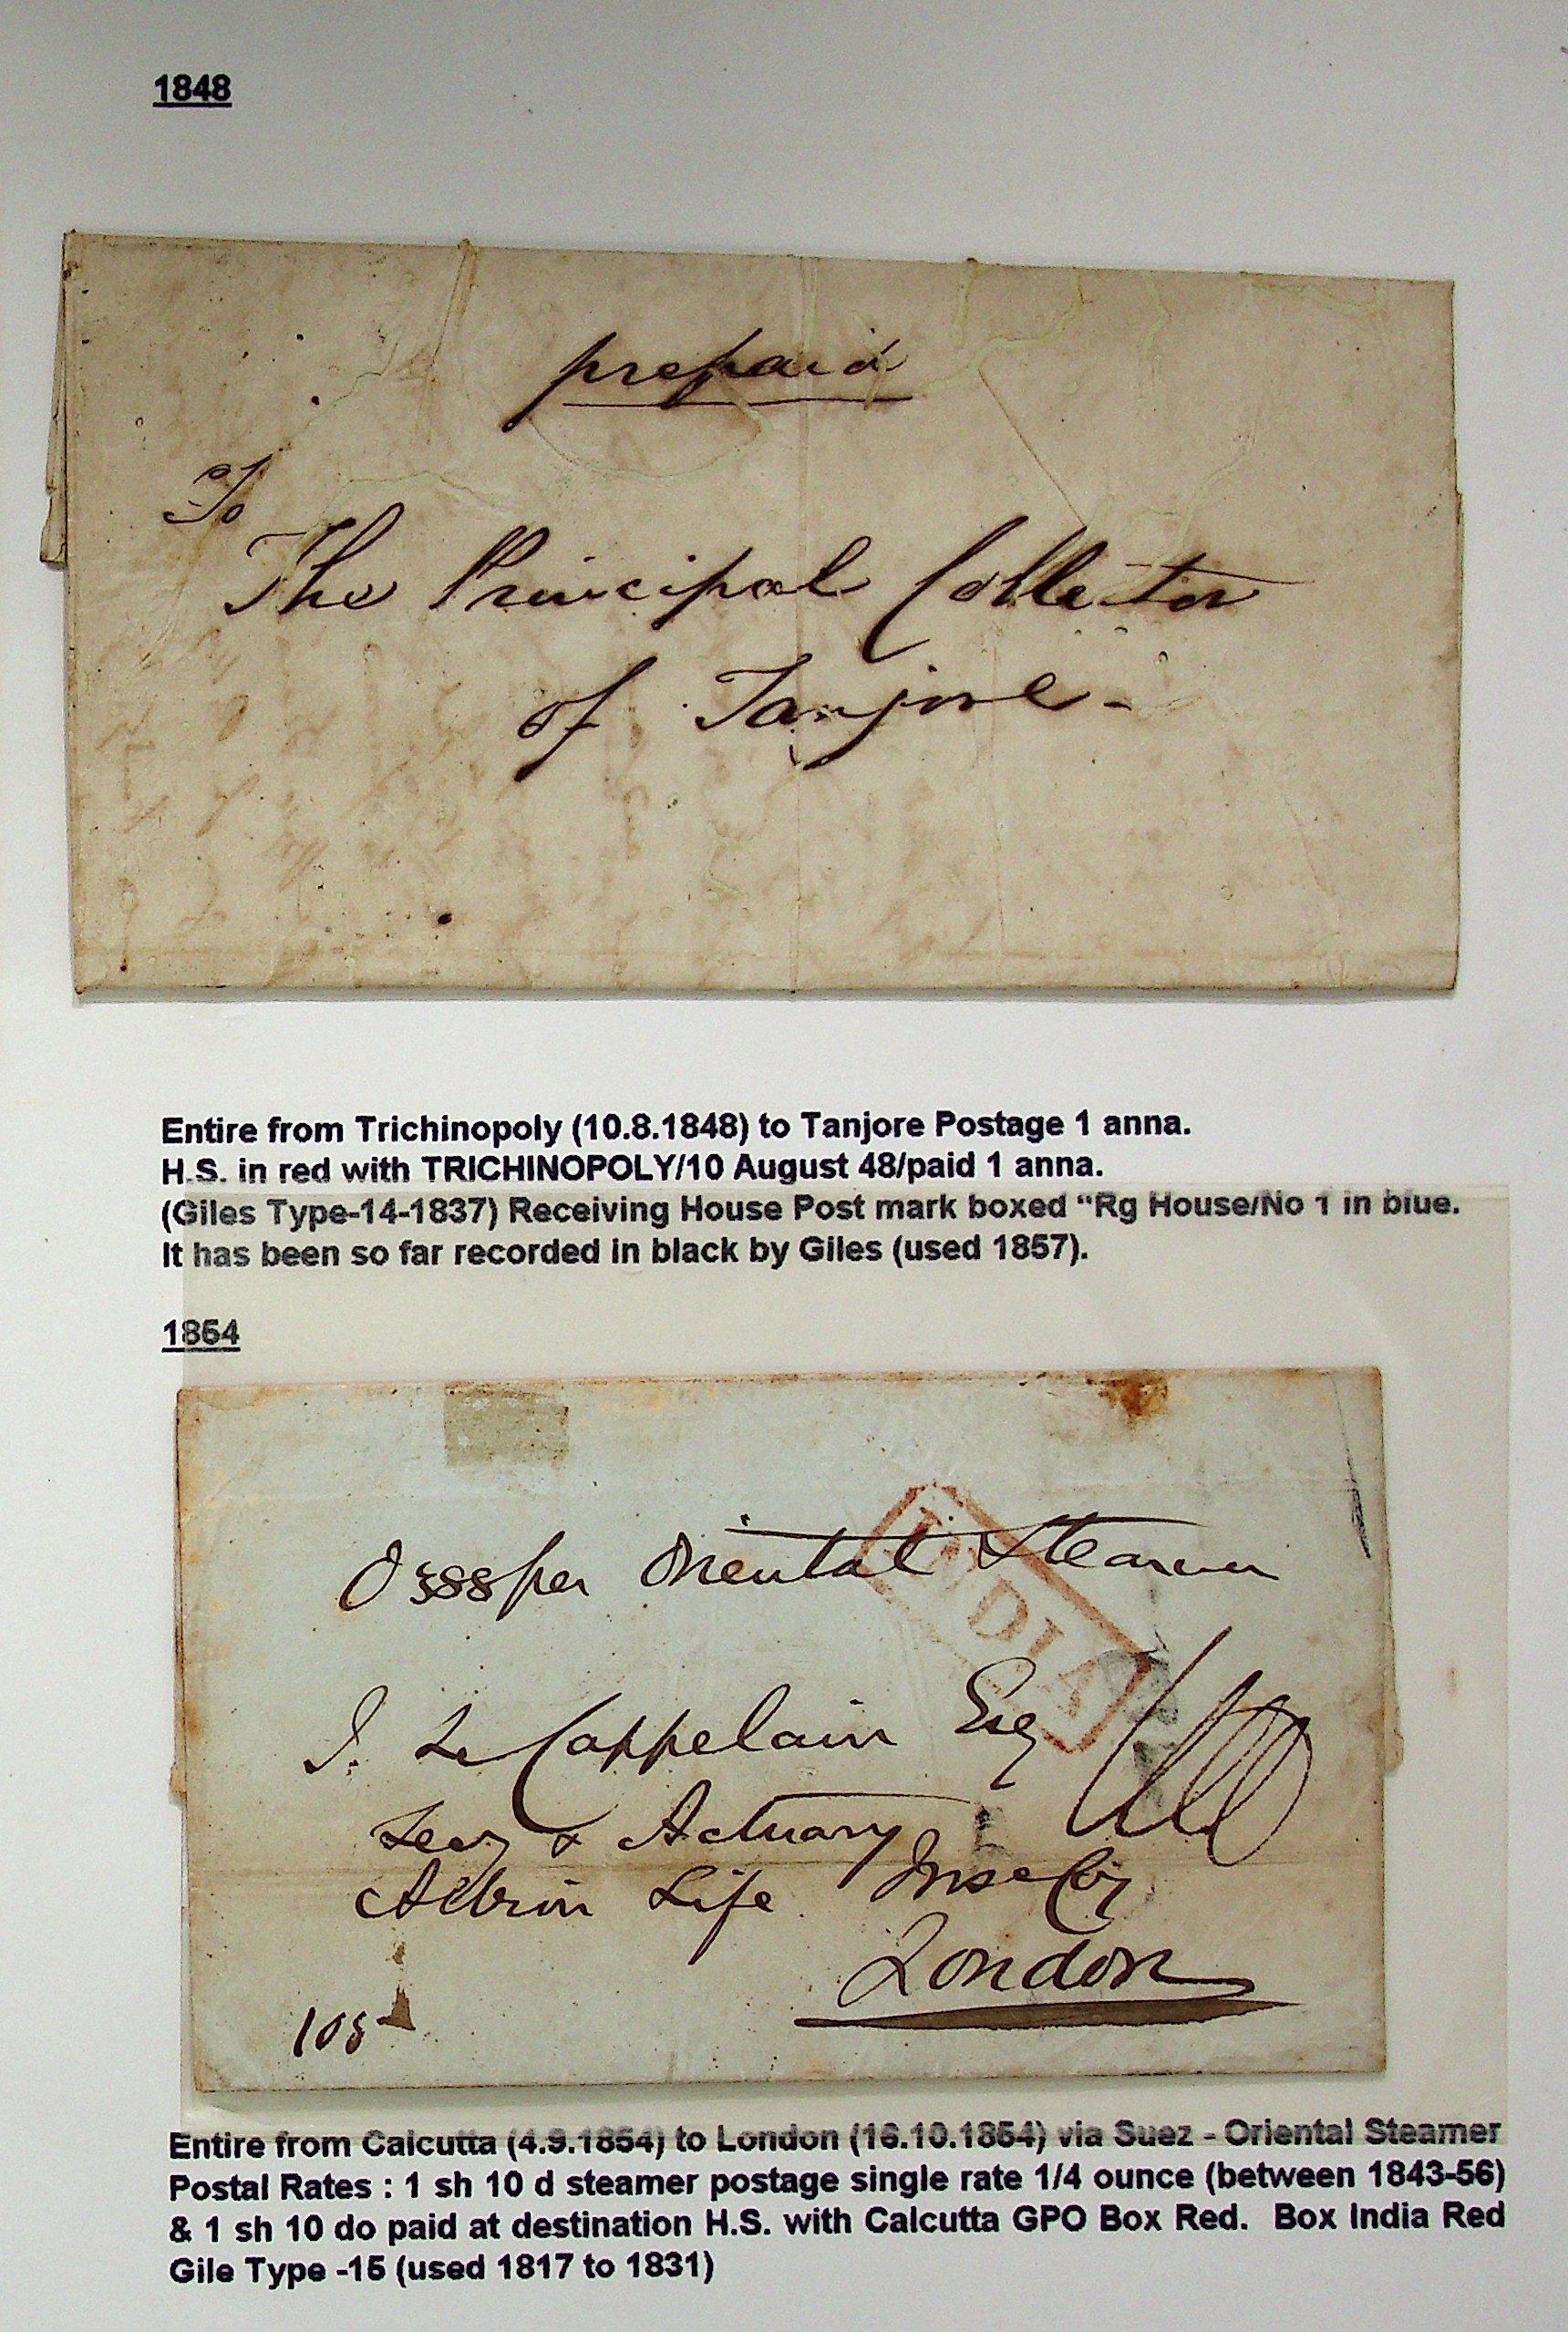 1848
prepaid
To
The Principal Collector
of Tanjore -
Entire from Trichinopoly (10.8.1848) to Tanjore Postage 1 anna.
H.S. in red with TRICHINOPOLY/10 August 48/paid 1 anna.
(Giles Type-14-1837) Receiving House Post mark boxed “Rg House/No 1 in blue.
It has been so far recorded in black by Giles (used 1857).
1854
per Oriental Steamer
INDIA
J. Le Cappelain Esq
Secy & Actuary
Albion Life Inse Coy
London
108
Entire from Calcutta (4.9.1854) to London (16.10.1854) via Suez - Oriental Steamer
Postal Rates : 1 sh 10 d steamer postage single rate 1/4 ounce (between 1843-56)
& 1 sh 10 do paid at destination H.S. with Calcutta GPO Box Red. Box India Red
Gile Type -15 (used 1817 to 1831)